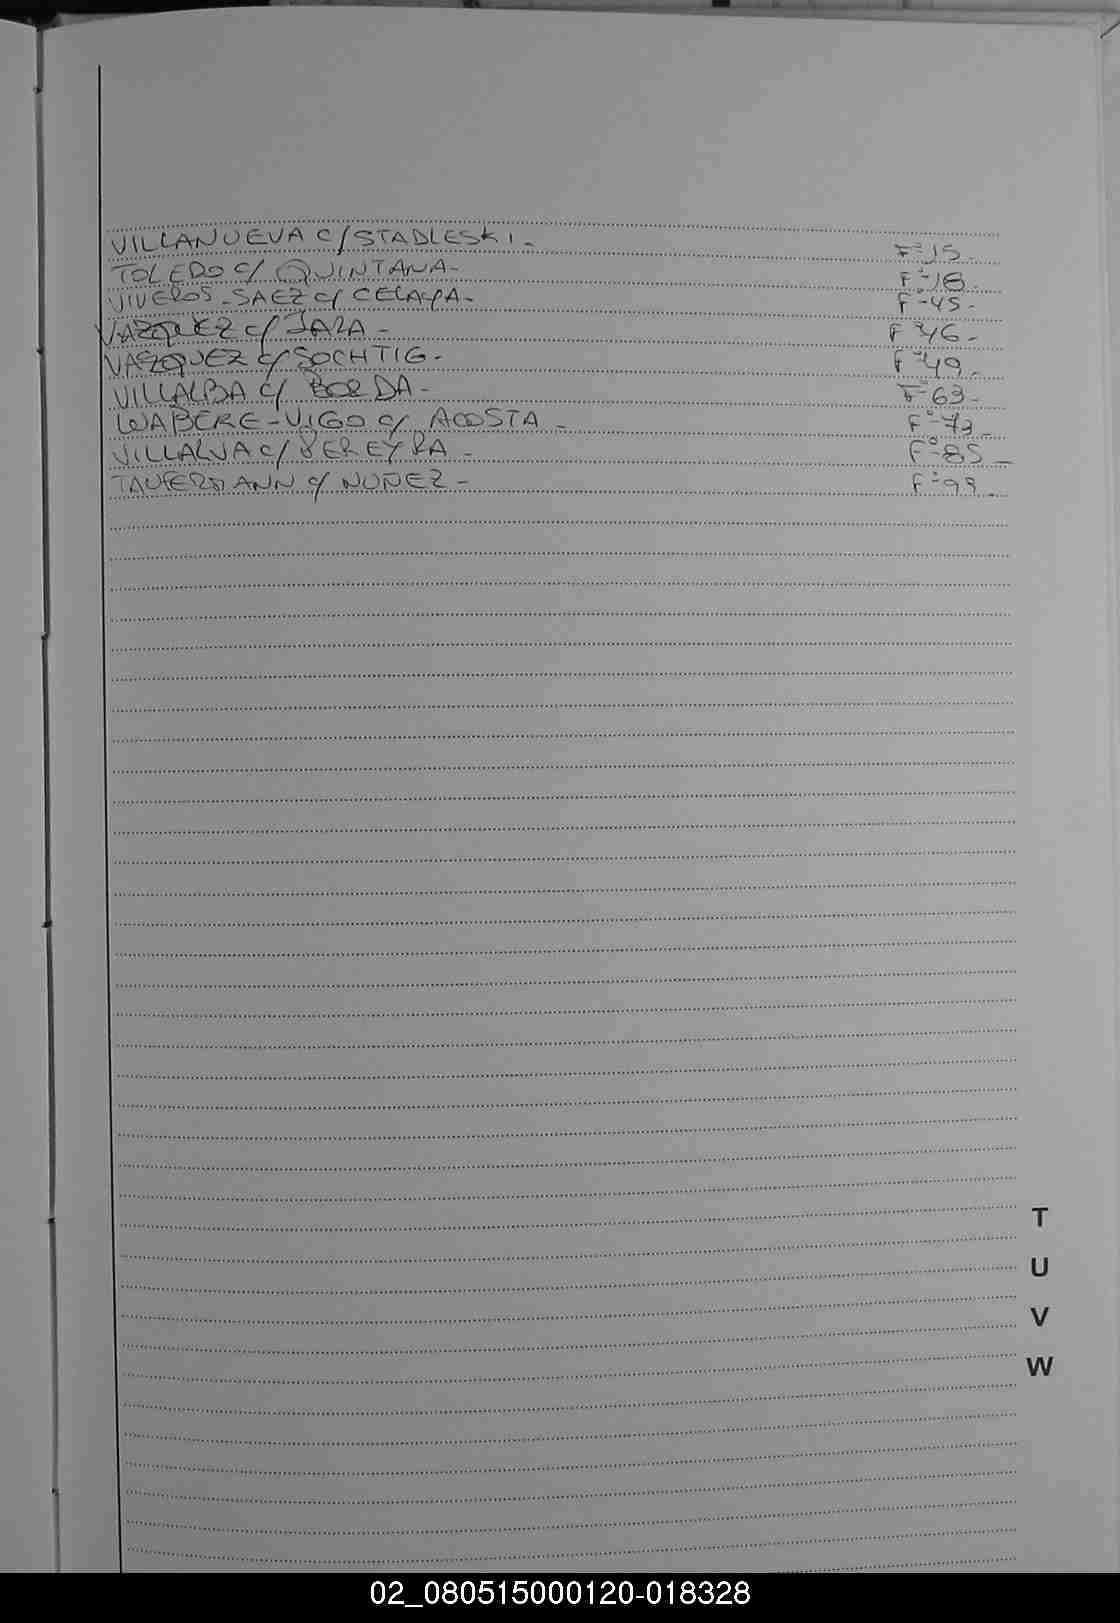 VILLANUEVA C/ STADLESKI.- Fº-15.-
TOLEDO C/ QUINTANA- Fº-18.-
VIVEROS-SAEZ C/ CELAYA- Fº-45-
VAZQUEZ C/ JARA- Fº46-
VAZQUEZ C/ SOCHTIG- Fº49-
VILLALBA C/ BORDA- Fº-63-
WABERE-VIGO C/ ACOSTA- Fº-73-
VILLALVA C/ PEREYRA- Fº-85-
C/ NUÑEZ- Fº-99-
T
U
V
W
02_080515000120-018328